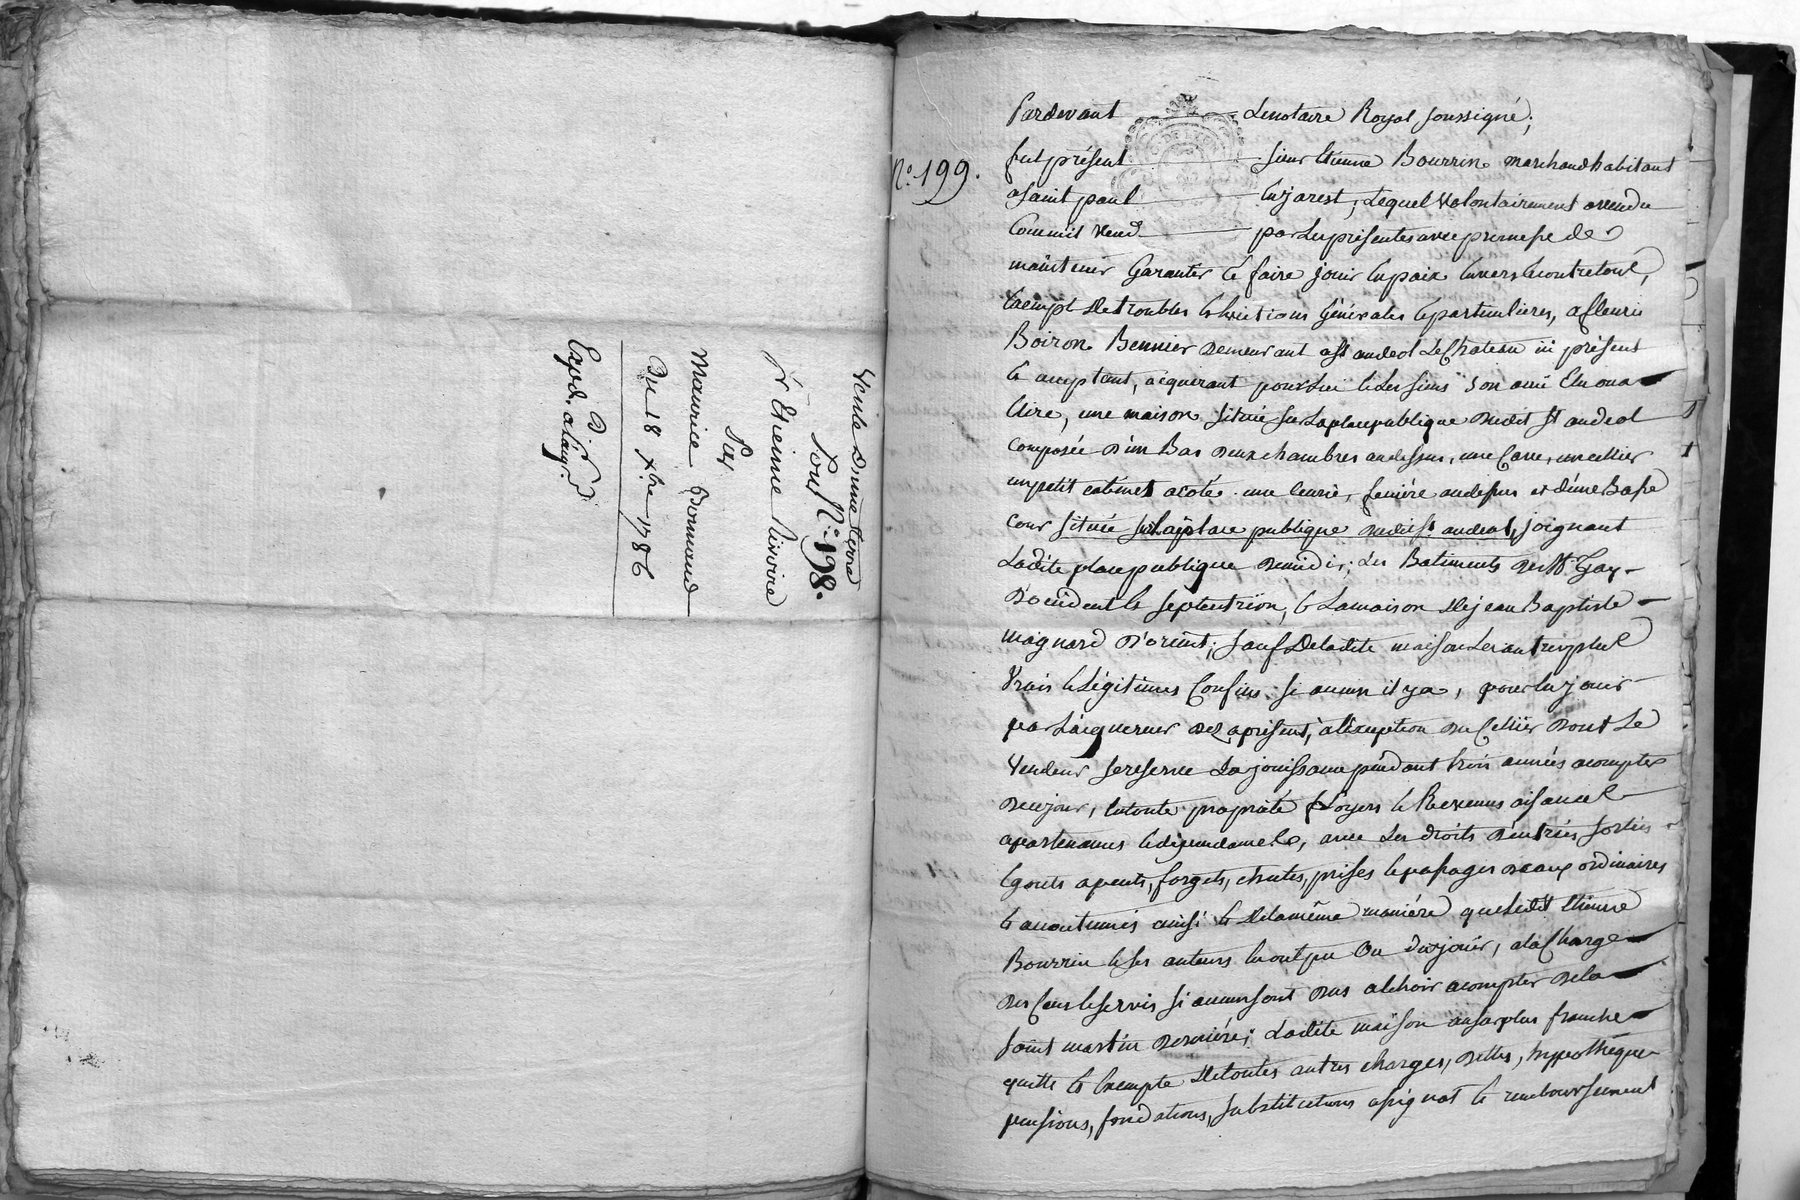 Vente d'une terre
Pour N.° 198.
Sr. Etienne Rivoire
Par
Maurice Bonnand
Du 18 xbre 1786
Expd. a l'aqr.
N.° 199.
Pardevant Lenotaire Royal soussigné;
fut présent sieur Etienne Bourrin marchand habitant
asaint paul Enjarest, Lequel Volontairement avendu
Comme il Vend par Les présentes avec promesse de
maintenir Garantir et faire jouir En paix Envers et contre tous,
Exempt de troubles et Evictions Générales et particulieres, a fleurie
Boiron Bennier demeurant a st andeol Le Chateau ici présent
et acceptant, acquerant pour Lui et Les siens son ami Elu ona
Elire, une maison située sur La place publique dudit st andeol
composée d'un Bas deux chambres au dessus, une Cave, un cellier
un petit cabinet acoté, une Ecurie, feniére au dessus et d'une Basse
Cour située sur La place publique dudit st. andeol, joignant
Ladite place publique de midi; Les Batiments de Mr. Gay
d'occident et septentrion, et La maison de jean Baptiste
magnard d'orient; sauf de Ladite maison Les autres plus
Vrais et Légitimes Confins si aucun il y a, pour En jouir
par L'acquereur dez apresent, a l'exception du Cellier dont Le
Vendeur se reserve La jouissance pendant trois années acompter
de ce jour, En toute propriété Loyers et Revenus aisances
apartenances et dependances, avec Les droits d'entrées, sorties
Egouts apents, forgets, chutes, prises et passages deaux ordinaires
et accoutumés ainsi et de La même maniére que Ledit Etienne
Bourrin et ses auteurs En ont pu ou du jouir, a La Charge
des Cens et servis si aucuns sont dus a Echoir acompter de La
saint martin derniére; Ladite maison au surplus franche
quitte et Exempte de toutes autres charges, dettes, hypotheques
pensions, fondations, substitutions assignat et remboursement